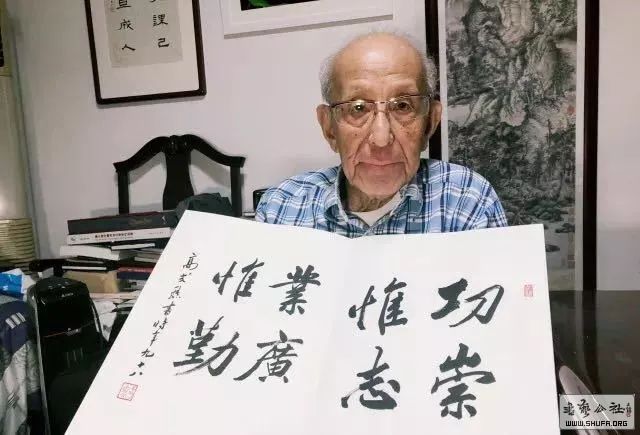 己人
課成
功崇
惟志
業廣
惟勤
高式熊書時年九十八
公社
WWW.SHUFA.ORG